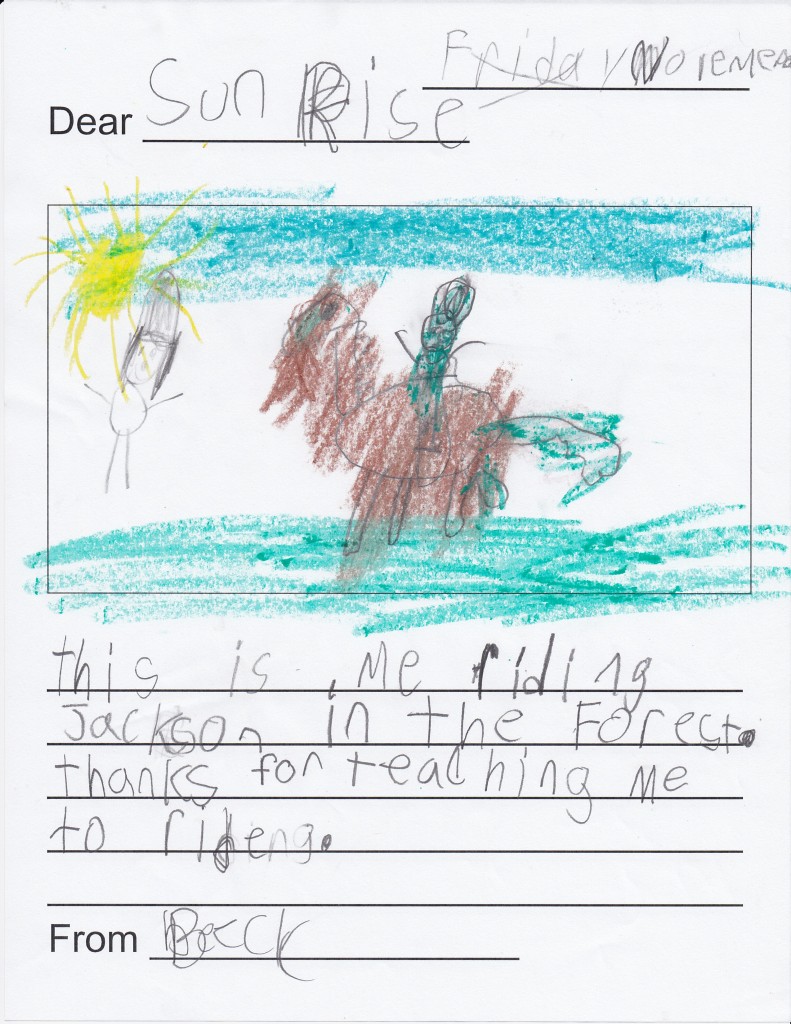 Friday
Dear Sun Rise
this is Me riding
Jackson in the Forest.
thanks for teaching Me
to rideng.
From Beck